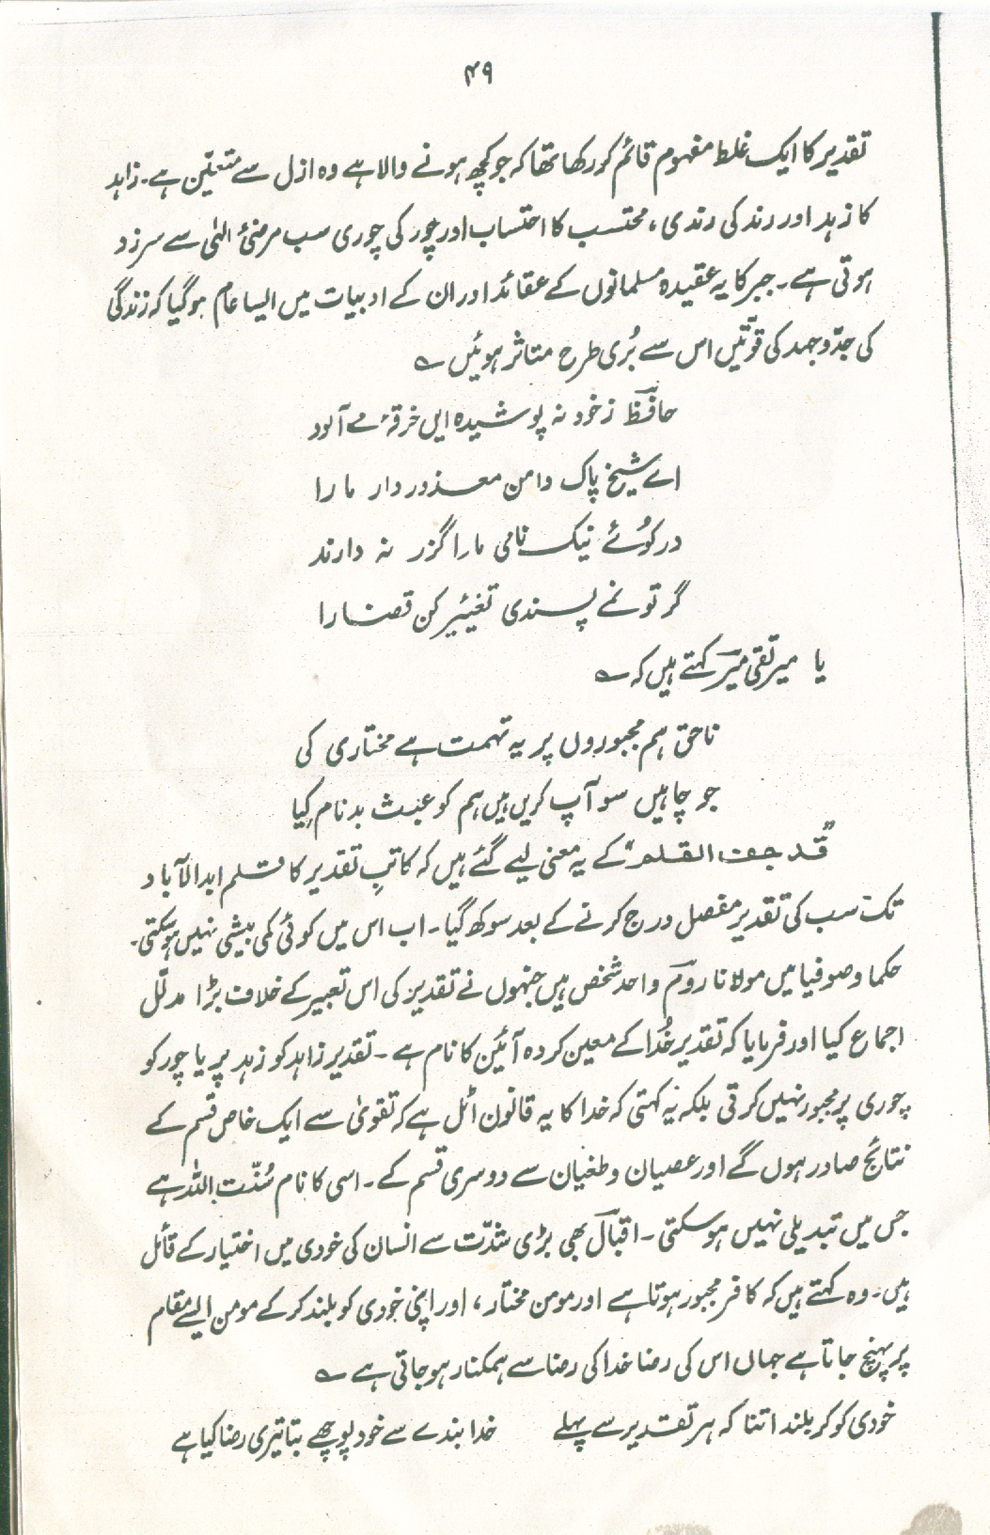 ۴۹
تقدیر کا ایک غلط مفہوم قائم کر رکھا تھا کہ جو کچھ ہونے والا ہے وہ ازل سے متعیّن ہے۔ زاہد
کا زہد اور رند کی رندی، محتسب کا احتساب اور چور کی چوری سب مرضئ الہٰی سے سرزد
ہوتی ہے۔ جبر کا یہ عقیدہ مسلمانوں کے عقائد اور ان کے ادبیات میں ایسا عام ہو گیا کہ زندگی
کی جدّوجہد کی قوّتیں اس سے بُری طرح متاثر ہوئیں ؎
حافظؔ ز خود نہ پوشیدہ ایں خرقۂ مے آلود
اے شیخ پاک دامن معذور دار ما را
در کوئے نیک نامی ما را گزر نہ دارند
گر تو نمے پسندی تغئیر کن قضا را
یا میر تقی میرؔ کہتے ہیں کہ ؎
ناحق ہم مجبوروں پر یہ تہمت ہے مختاری کی
جو چاہیں سو آپ کریں ہیں ہم کو عبث بدنام کِیا
”قُد جف القلم“ کے یہ معنی لیے گئے ہیں کہ کاتبِ تقدیر کا قلم ابدالآباد
تک سب کی تقدیر مفصل درج کرنے کے بعد سوکھ گیا۔ اب اس میں کوئی کمی بیشی نہیں ہو سکتی۔
حکما و صوفیا میں مولانا رومؔ واحد شخص ہیں جنہوں نے تقدیر کی اس تعبیر کے خلاف بڑا مدلّل
اجماع کیا اور فرمایا کہ تقدیر خُدا کے معین کردہ آئین کا نام ہے۔ تقدیر زاہد کو زہد پر یا چور کو
چوری پر مجبور نہیں کرتی بلکہ یہ کہتی کہ خدا کا یہ قانون اٹل ہے کہ تقویٰ سے ایک خاص قسم کے
نتائج صادر ہوں گے اور عصیان و طغیان سے دوسری قسم کے۔ اسی کا نام سُنّت اللہ ہے
جس میں تبدیلی نہیں ہو سکتی۔ اقبالؔ بھی بڑی شدّت سے انسان کی خودی میں اختیار کے قائل
ہیں۔ وہ کہتے ہیں کہ کافر مجبور ہوتا ہے اور مومن مختار، اور اپنی خودی کو بلند کر کے مومن ایسے مقام
پر پہنچ جاتا ہے جہاں اس کی رضا خدا کی رضا سے ہمکنار ہو جاتی ہے ؎
خودی کو کر بلند اتنا کہ ہر تقدیر سے پہلے خدا بندے سے خود پوچھے بتا تیری رضا کیا ہے